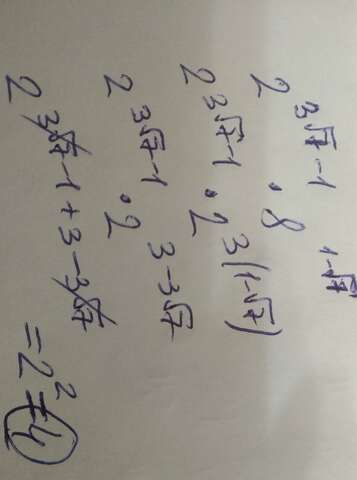 2^{3√7-1} · 8^{1-√7}
2^{3√7-1} · 2^{3(1-√7)}
2^{3√7-1} · 2^{3-3√7}
2^{3√7-1+3-3√7} = 2^2 = 4